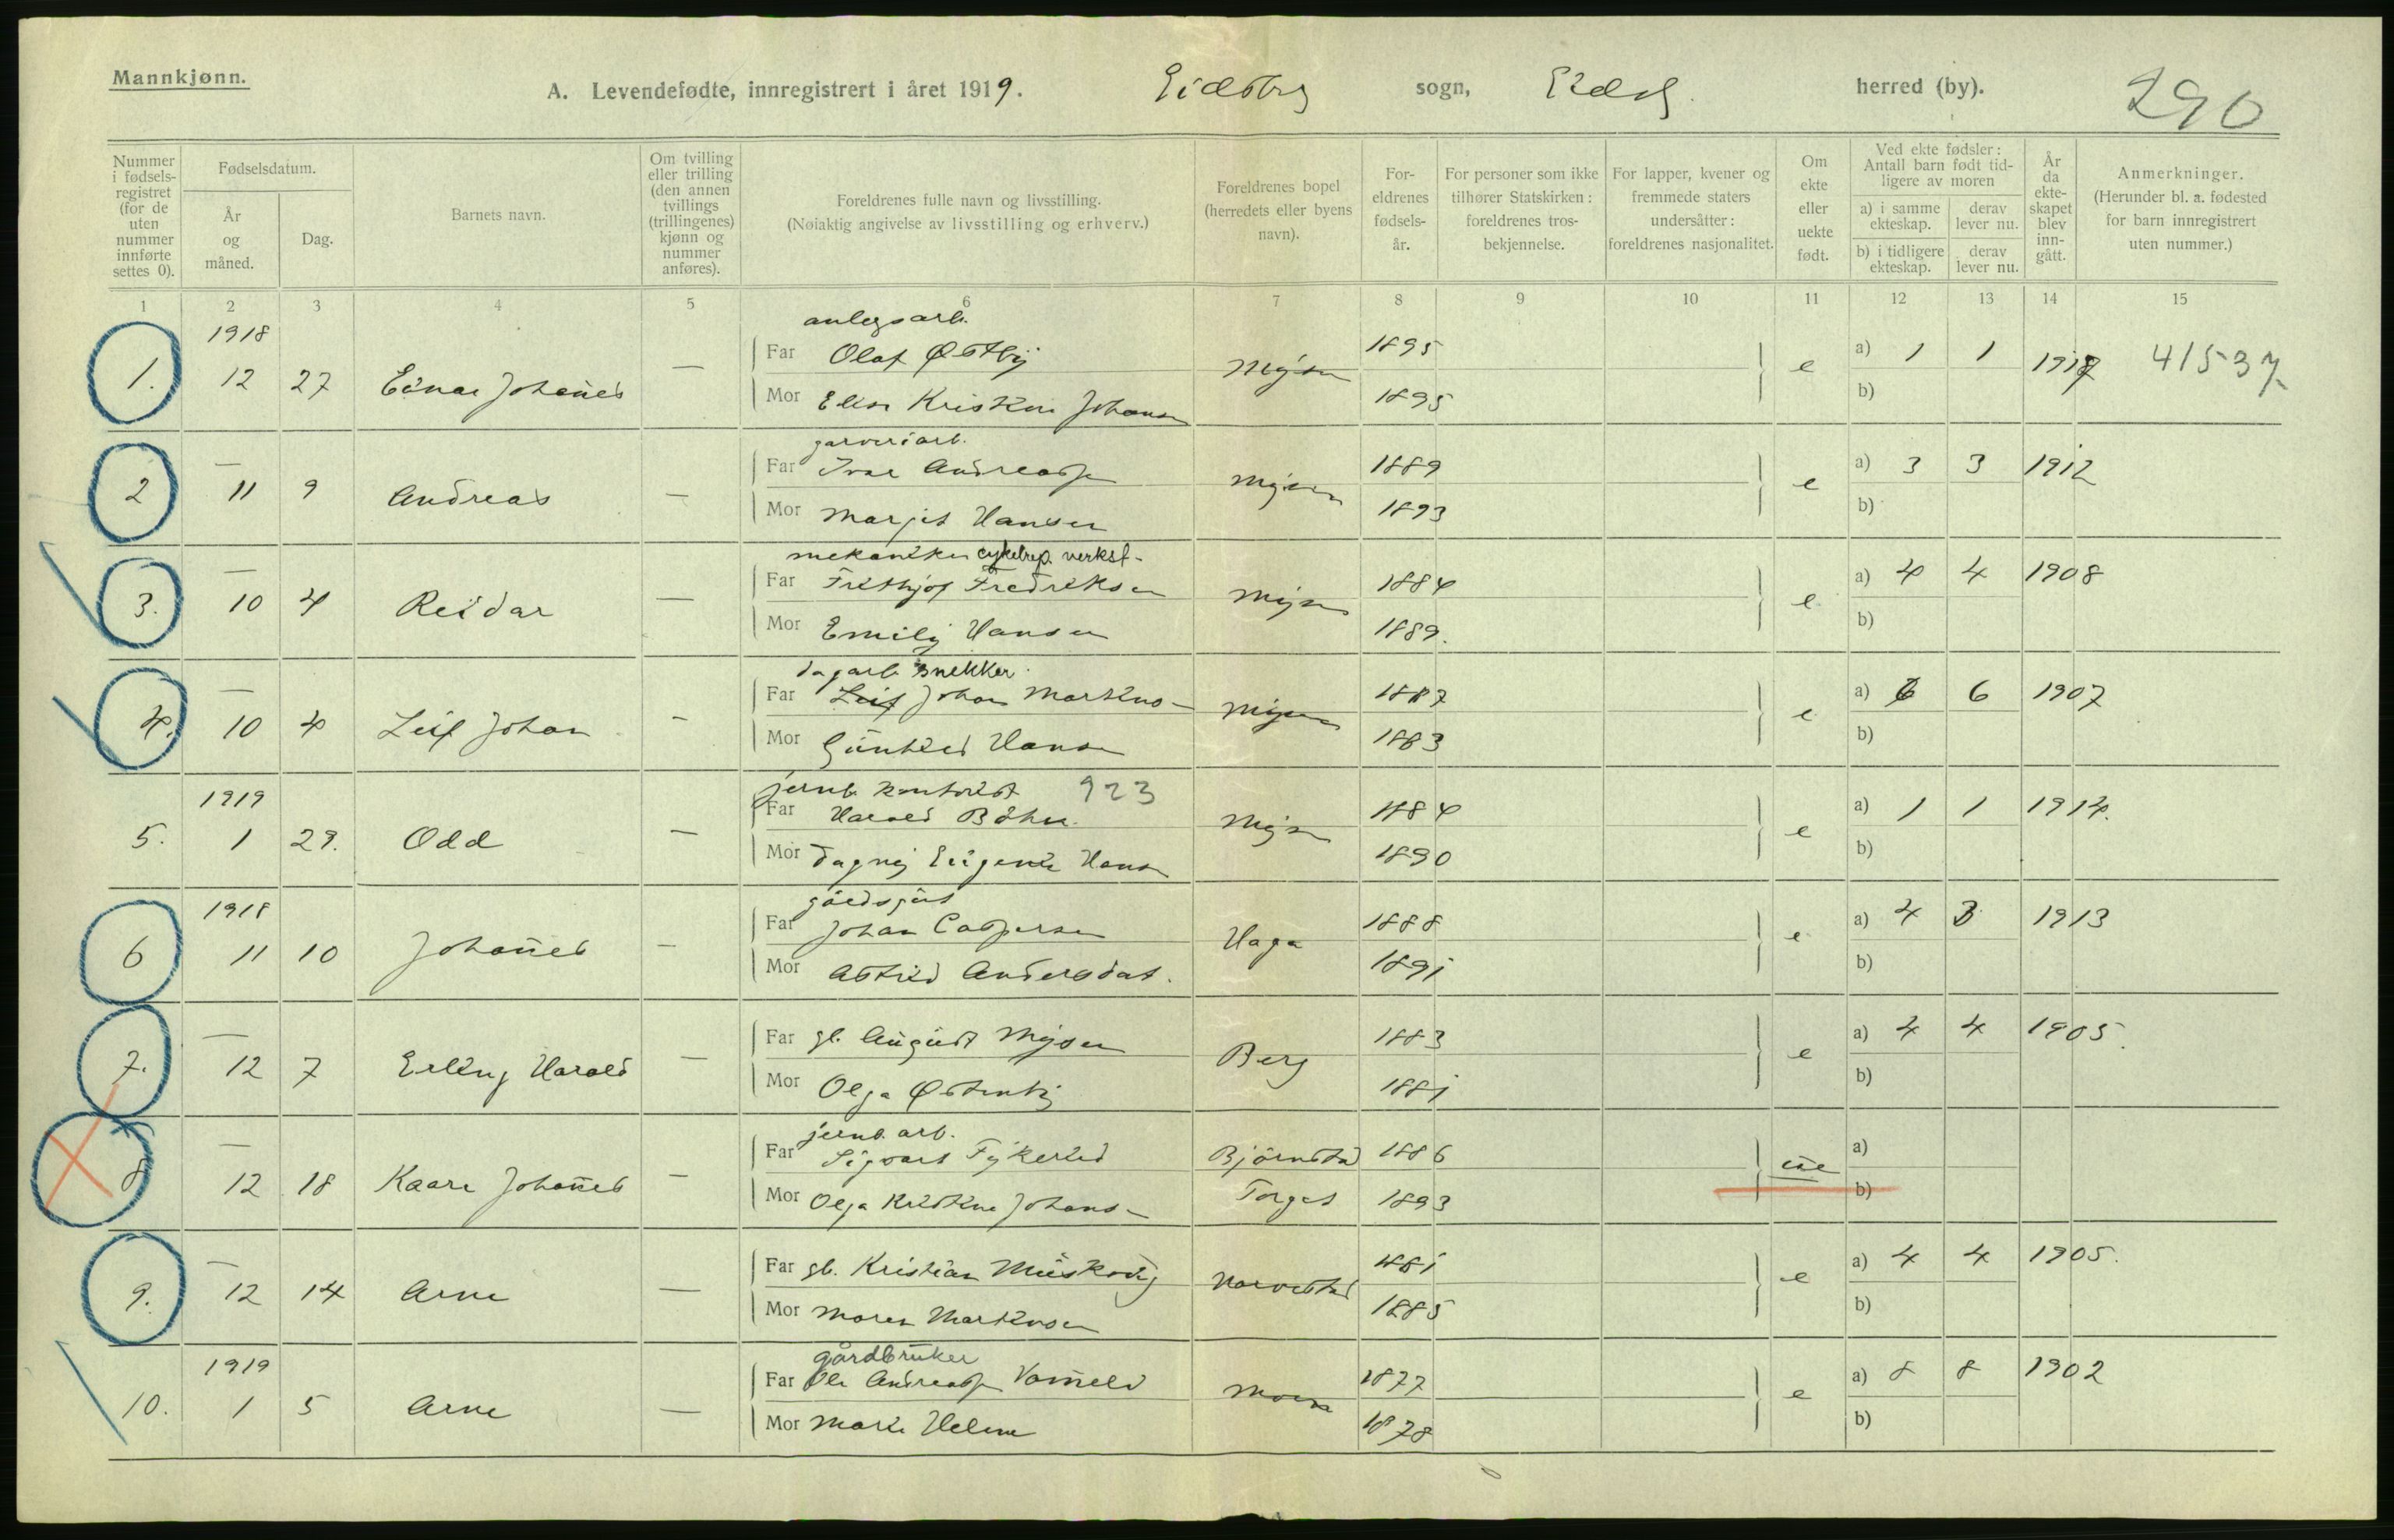 Mannkjønn.
A. Levendefødte, innregistrert i året 1919. Eidsberg sogn, Eidsb. herred (by). 290
Nummer i fødselsregistret (for de uten nummer innførte settes 0).
Fødselsdatum.
År og måned.
Dag.
Barnets navn.
Om tvilling eller trilling (den annen tvillings (trillingenes) kjønn og nummer anføres).
Foreldrenes fulle navn og livsstilling.
(Nøiaktig angivelse av livsstilling og erhverv.)
Foreldrenes bopel (herredets eller byens navn).
Foreldrenes fødselsår.
For personer som ikke tilhører Statskirken: foreldrenes trosbekjennelse.
For lapper, kvener og fremmede staters undersåtter: foreldrenes nasjonalitet.
Om ekte eller uekte født.
Ved ekte fødsler: Antall barn født tidligere av moren
a) i samme ekteskap. derav lever nu.
b) i tidligere ekteskap. derav lever nu.
År da ekteskapet blev inngått.
Anmerkninger.
(Herunder bl. a. fødested for barn innregistrert uten nummer.)
1 2 3 4 5 6 7 8 9 10 11 12 13 14 15
1918 anlegsarb.
1. 12 27 Einar Johannes — Far Olaf Østby Mysen 1895 e a) 1 1 1917 41537
Mor Elise Kristine Johansen 1895 b)
garveriarb.
2 — 11 9 Andreas — Far Ivar Andreassen Mysen 1889 e a) 3 3 1912
Mor Marjit Hansen 1893 b)
mekaniker cykelrep. verkst-
3. — 10 4 Reidar — Far Frithjof Fredriksen Mysen 1884 e a) 4 4 1908
Mor Emily Hansen 1889. b)
dagarb. snekker
4. — 10 4 Leif Johan - Far Leif Johan Martins- Mysen 1887 e a) 6 6 1907
Mor Gunhild Hansen 1883 b)
1919 jernb. kontorist 923
5. 1 29. Odd — Far Harald Bøhn Mysen 1884 e a) 1 1 1914.
Mor Dagny Eugenie Hansen 1890 b)
1918 gårdsgut
6 11 10 Johannes - Far Johan Caspersen Haga 1888 e a) 4 3 1913
Mor Astrid Andersdat. 1891 b)
7. — 12 7 Erling Harald — Far gb. August Mysen Berg 1883 e a) 4 4 1905.
Mor Olga Østenby 1881 b)
jernb. arb.
8 — 12 18 Kaare Johannes - Far Sigvart Bjørnstad 1886 ue a)
Mor Olga Kristine Johans- Torget 1893 b)
9. — 12 14 Arne — Far gb. Kristian 1881 e a) 4 4 1905.
Mor Maren Martinsen 1885 b)
1919 gårdbruker
10. 1 5 Arne — Far Ole Andreassen Moen 1877 e a) 8 8 1902
Mor Marie Helene 1878 b)